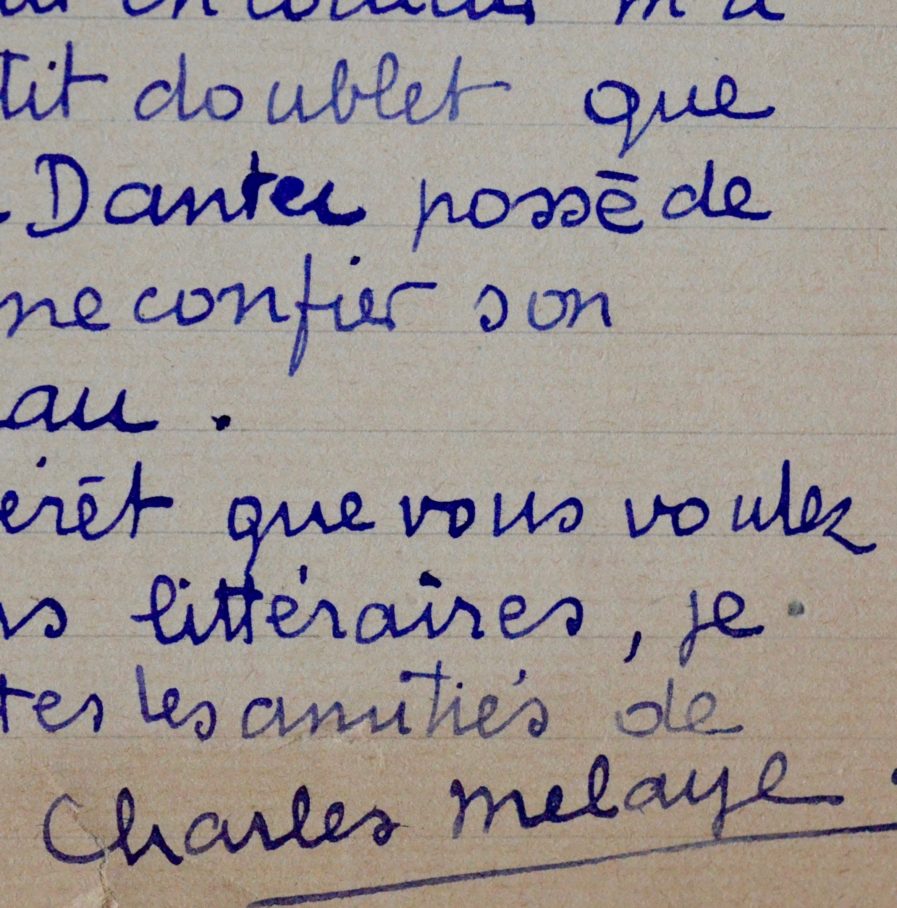 m'a
tit doublet que
Dantec possède
me confier son
au.
érêt que vous voulez
ns littéraires, je
tes les amitiés de
Charles Melaye.